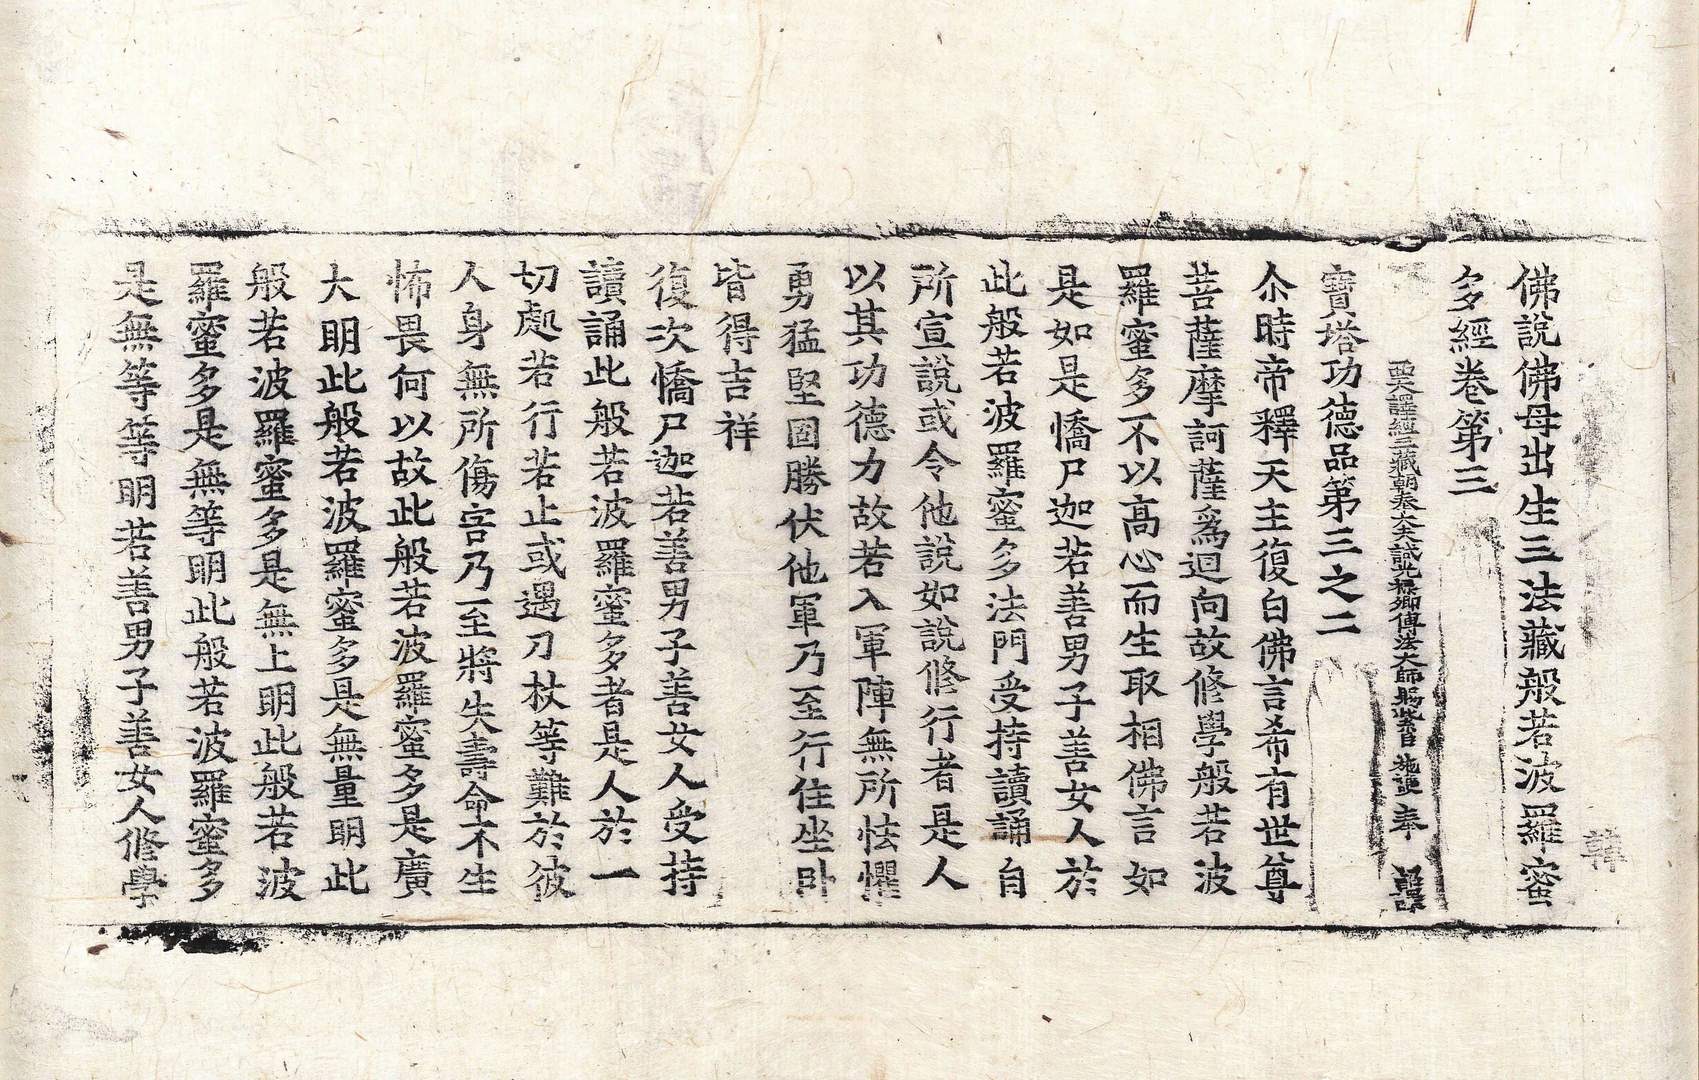 韓
佛說佛母出生三法藏般若波羅蜜
多經卷第三
西天譯經三藏朝奉大夫試光祿卿傳法大師賜紫臣 施護 奉 詔譯
寶塔功德品第三之二
尒時帝釋天主復白佛言希有世尊
菩薩摩訶薩爲迴向故修學般若波
羅蜜多不以高心而生取相佛言如
是如是憍尸迦若善男子善女人於
此般若波羅蜜多法門受持讀誦自
所宣說或令他說如說修行者是人
以其功德力故若入軍陣無所怯懼
勇猛堅固勝伏他軍乃至行住坐卧
皆得吉祥
復次憍尸迦若善男子善女人受持
讀誦此般若波羅蜜多者是人於一
切處若行若止或遇刀杖等難於彼
人身無所傷害乃至將失壽命不生
怖畏何以故此般若波羅蜜多是廣
大明此般若波羅蜜多是無量明此
般若波羅蜜多是無上明此般若波
羅蜜多是無等明此般若波羅蜜多
是無等等明若善男子善女人修學